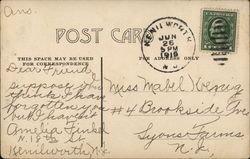 Ans.
POST CARD
THIS SPACE MAY BE USED
FOR CORRESPONDENCE
FOR ADDRESS ONLY
KENILWORTH
JUN
26
5 PM
1916
N.J.
Dear Friend
I suppose you
think I have
forgotten you
but I haven't
Amelia
Kenilworth N.J.
Miss Mabel
#4 Brookside Ave
Lyons Farms
N.J.